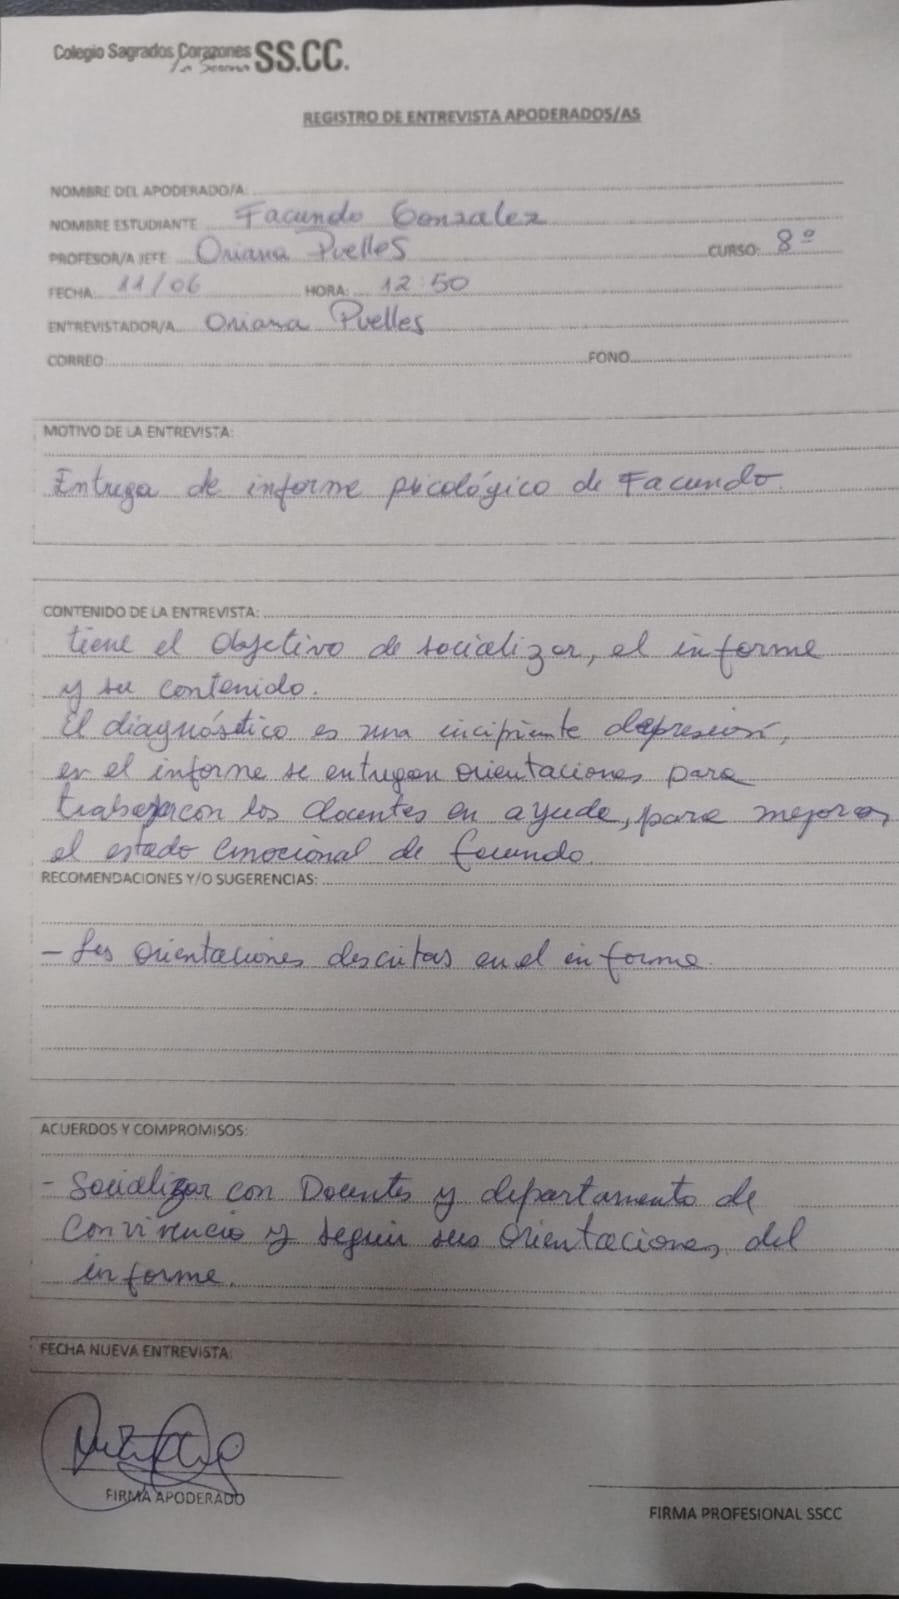 Colegio Sagrados Corazones SS.CC.
La Serena
REGISTRO DE ENTREVISTA APODERADOS/AS
NOMBRE DEL APODERADO/A:
NOMBRE ESTUDIANTE Facundo Gonzalez
PROFESOR/A JEFE Oriana Puelles CURSO: 8º
FECHA: 11/06 HORA: 12:50
ENTREVISTADOR/A Oriana Puelles
CORREO: FONO
MOTIVO DE LA ENTREVISTA:
Entrega de informe psicológico de Facundo.
CONTENIDO DE LA ENTREVISTA:
tiene el Objetivo de socializar, el informe
y su contenido.
El diagnóstico es una incipiente depresión,
en el informe se entregan orientaciones para
trabajar con los docentes en ayuda, para mejorar
el estado emocional de facundo.
RECOMENDACIONES Y/O SUGERENCIAS:
- Las orientaciones descritas en el informe.
ACUERDOS Y COMPROMISOS:
- Socializar con Docentes y departamento de
Convivencia y seguir sus orientaciones, del
informe.
FECHA NUEVA ENTREVISTA:
FIRMA APODERADO
FIRMA PROFESIONAL SSCC